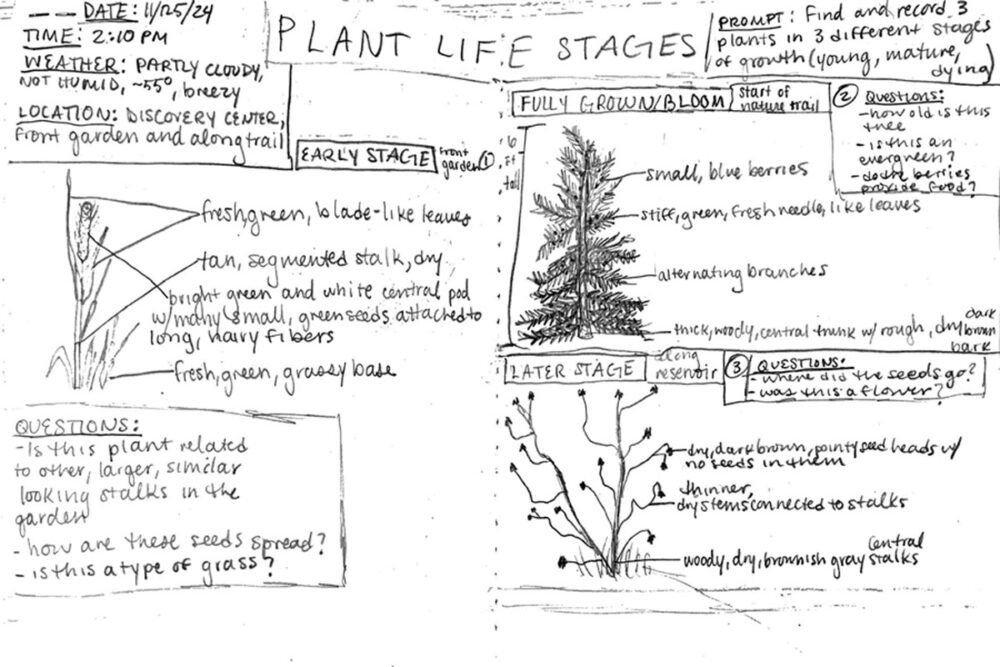 DATE: 11/25/24
TIME: 2:10 PM
WEATHER: PARTLY CLOUDY,
NOT HUMID, ~55°, breezy
LOCATION: DISCOVERY CENTER,
front garden and along trail
PLANT LIFE STAGES
PROMPT: Find and record 3
plants in 3 different stages
of growth (young, mature,
dying)
EARLY STAGE
front
garden
1
fresh green, blade-like leaves
tan, segmented stalk, dry
bright green and white central pod
w/ many small, green seeds attached to
long, hairy fibers
fresh, green, grassy base
QUESTIONS:
- Is this plant related
to other, larger, similar
looking stalks in the
garden
- how are these seeds spread?
- is this a type of grass?
FULLY GROWN/BLOOM
start of
nature trail
2
QUESTIONS:
- how old is this
tree
- is this an
evergreen?
- do the berries
provide food?
6
ft
tall
small, blue berries
stiff, green, fresh needle, like leaves
alternating branches
thick, woody, central trunk w/ rough, dry
dark
brown
bark
LATER STAGE
along
reservoir
3
QUESTIONS:
- where did the seeds go?
- was this a flower?
dry, dark brown, pointy seed heads w/
no seeds in them
thinner,
dry stems connected to stalks
woody, dry, brownish gray central stalks